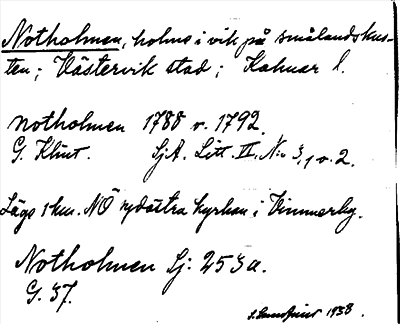 Notholmen, holme i vik på smålandskus-
ten; Västervik stad; Kalmar l.
Notholmen 1788 o. 1792.
G. Klint. SjA. Litt. II. N:o 3, 1 o. 2.
Lägs 1 km. NÖ sydöstra kyrkan i Vimmerby.
Notholmen Sj: 253a.
G. 37.
1938.